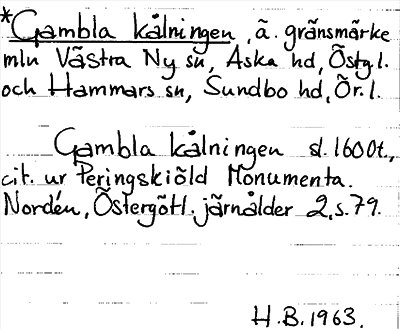 *Gambla kålningen, ä. gränsmärke
mln Västra Ny sn, Aska hd, Östg.l.
och Hammars sn, Sundbo hd, Ör.l.
Gambla kålningen sl. 1600t.,
cit. ur Peringskiöld Monumenta.
Nordén, Östergötl. järnålder 2, s. 79.
H.B. 1963.